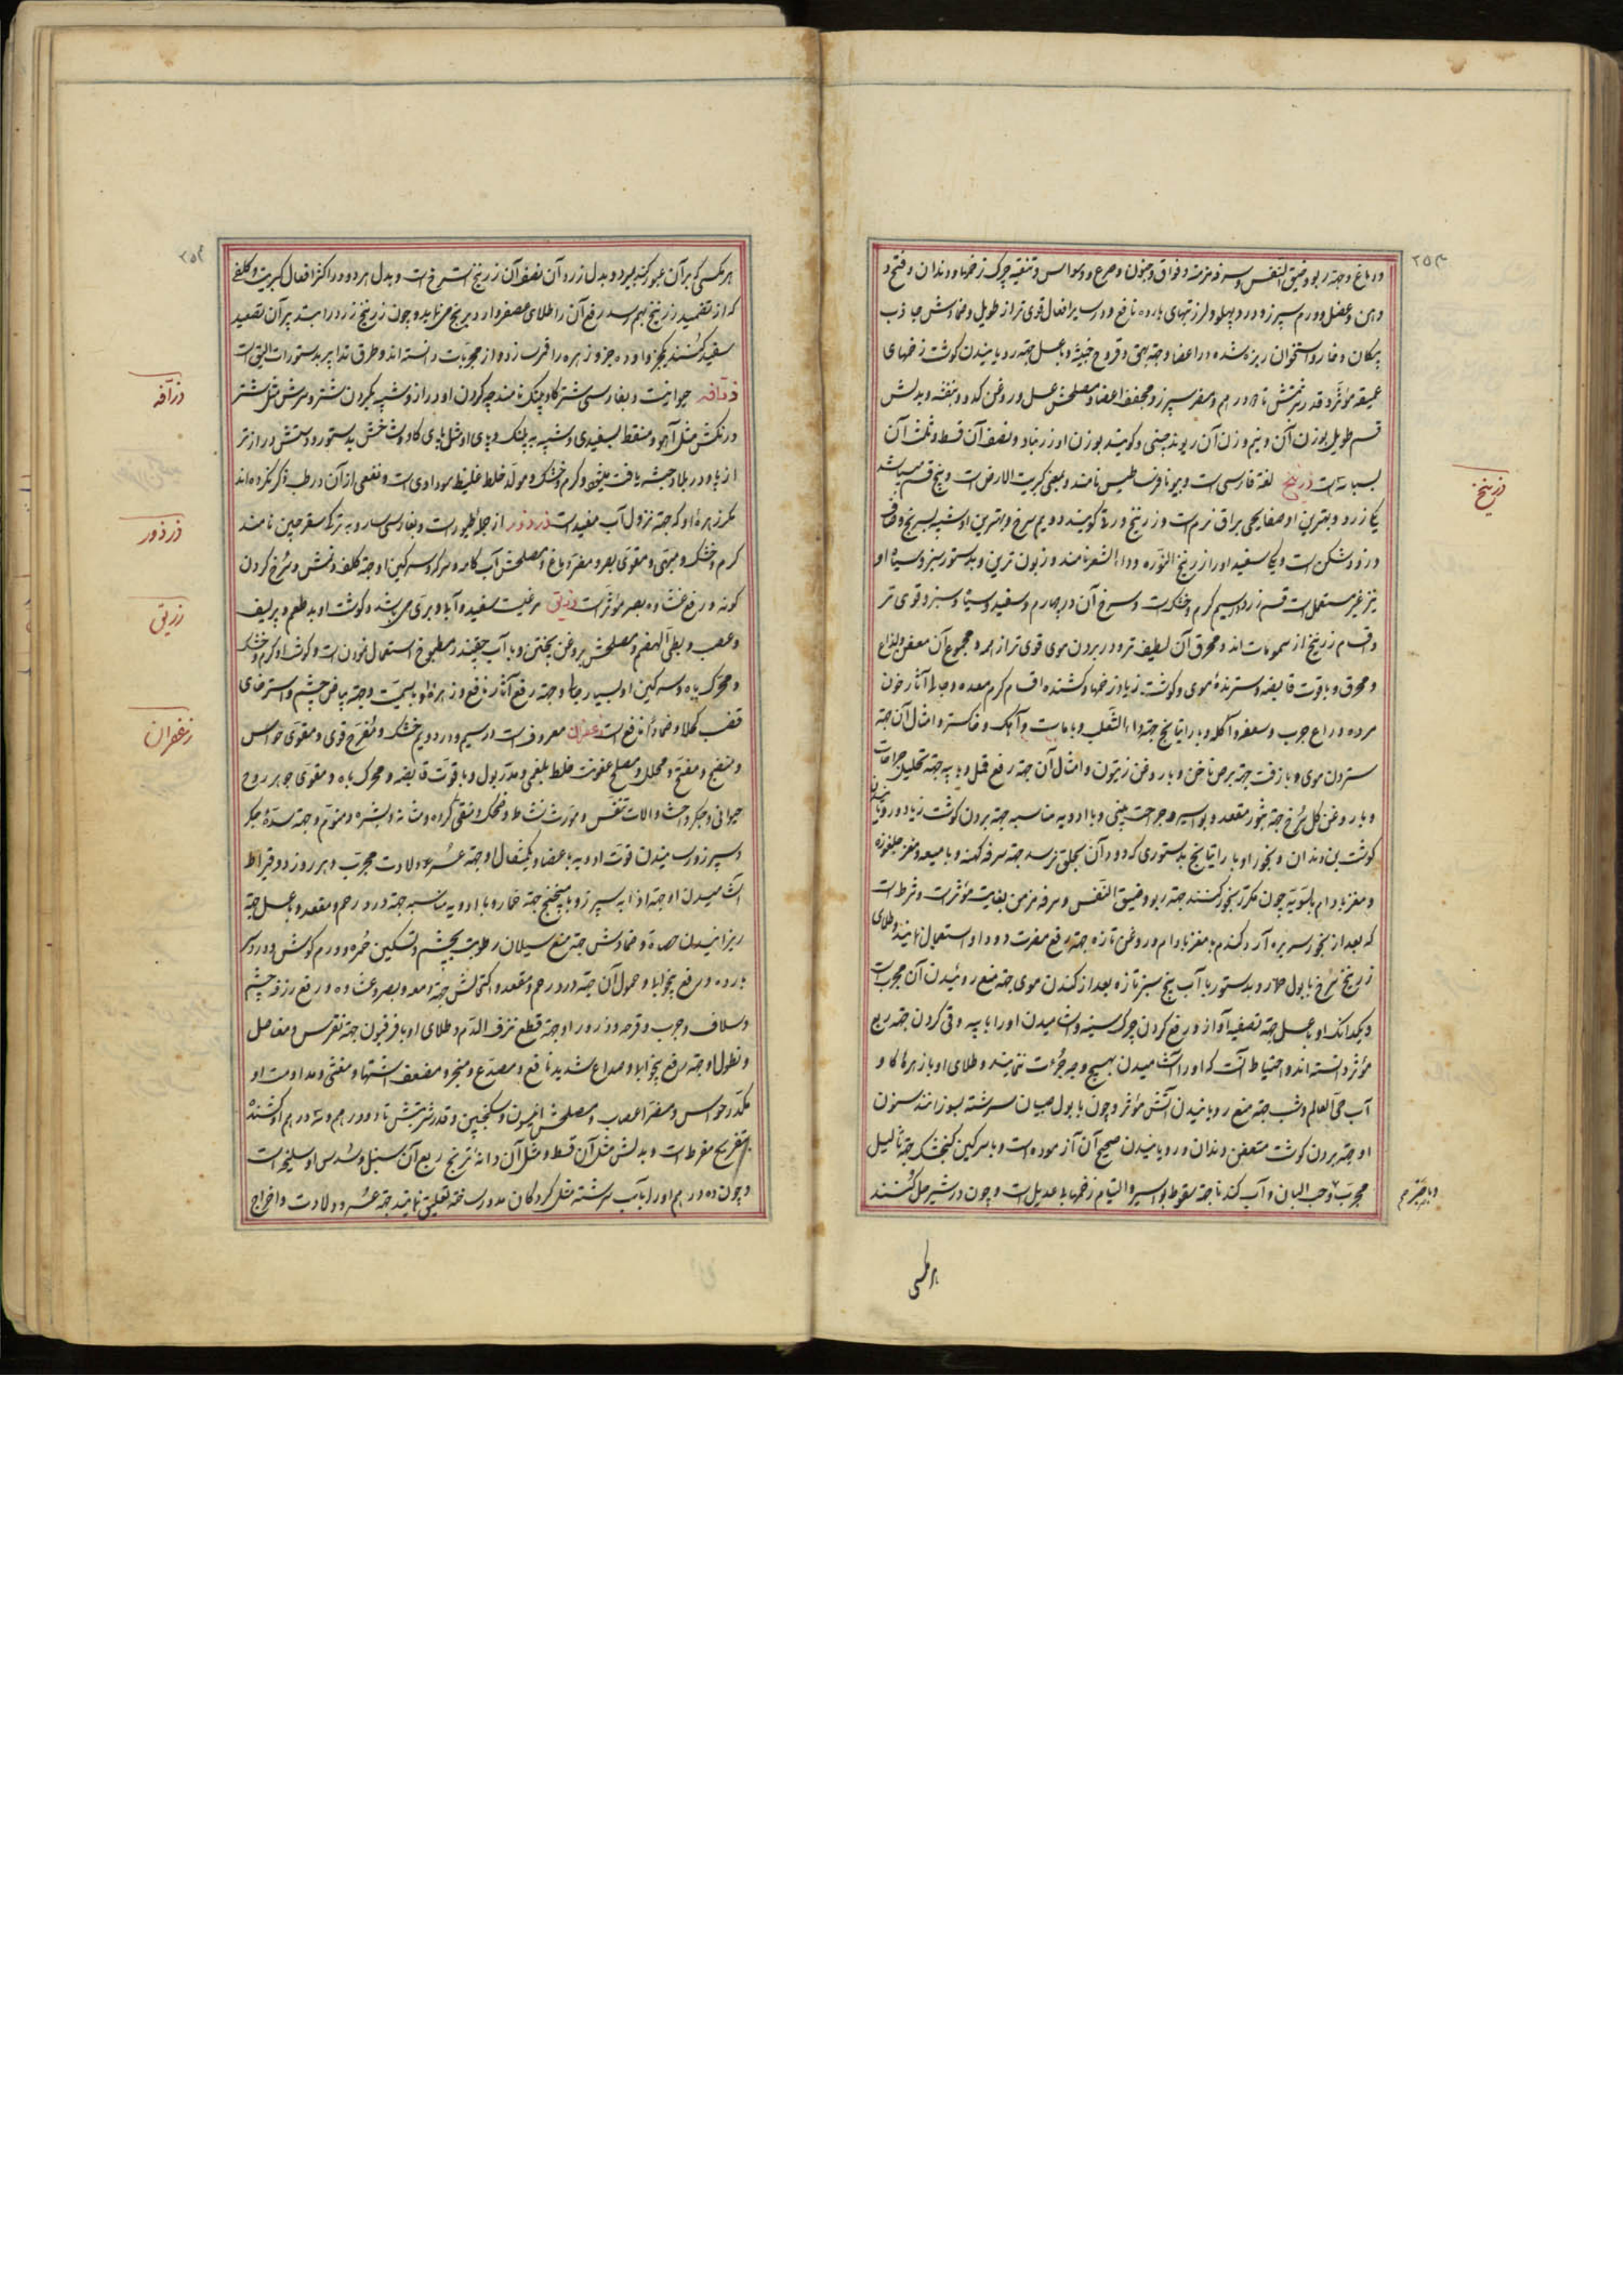 ۲۵۳
و دماغ و جهة ربو و ضیق النفس و سرفه مزمنه و فواق و جنون و صرع و وسواس و تنقیه چرک زخمها و دندان و فتح و
وهن و عضل و ورم سپرز و درد پهلو و لرز تبهای بارده نافع و در سایر افعال قوی تر از طویل و ضمادش جاذب
پیکان و خار و استخوان ریزه شده در اعضا و جهة بهق و قروح خبیثه و با عسل جهة رویانیدن گوشت زخمهای
عمیقه مؤثر و قدر شربتش تا درهم و مضر سپرز و مجفف اعضا و مصلحش عسل و روغن کدو و بنفشه و بدلش
قسم طویل بوزن آن و نیم وزن آن ریوند چینی و گویند بوزن او زرنباد و نصف آن قسط و ثلث آن
بسباسه است زرنیخ لغة فارسی است و بیونانی ارساطیس نامند و بعض کبریت الارض است و پنج قسم میباشد
یکی زرد و بهترین او صفایحی براق نرم است و زرنیخ ورقی گویند دویم سرخ و بهترین او شبیه بسرنج و صاف
و زود شکن است و یکی سفید او را زرنیخ النوره و دواء الشعر نامند و زبون ترین و بدستور سبز و سیاه او
نیز غیر مستعمل است قسم زرد در سیم گرم و خشک است و سرخ آن در چهارم و سفید و سیاه و سبز و قوی تر
و اقسام زرنیخ از سمومات اند و محرق آن لطیف تر و در بردن موی قوی تر از همه و مجموع آن معفن و لذاع
و محرق و با قوت قابضه و سترندهٔ موی و گوشت زیاد زخمها و کشنده اقسام کرم معده و جالی آثار خون
مرده و رافع جرب و سعفه و آکله و با راتیانج جهة داء الثعلب و با ماست و آهک و خاکستر و امثال آن جهة
ستردن موی و با زفت جهة برص ناخن و با روغن زیتون و امثال آن جهة رفع قمل و با پیه جهة تحلیل جراحات
و با روغن گل سرخ جهة بثور مقعد و بواسیر و جراحت بینی و با ادویه مناسبه جهة بردن گوشت زیاد و رویانیدن
گوشت بن دندان و بخور او با راتیانج بدستوری که دود آن بحلق نرسد جهة سرفه کهنه و با میعه و مغز چلغوزه
و مغز بادام بالسویه چون مکرر بخور کنند جهة ربو و ضیق النفس و سرفه مزمن بغایت مؤثر است و شرط است
که بعد از بخور سه بره آرد گندم با مغز بادام و روغن تازه جهة رفع مضرت دود او استعمال نمایند و طلای
زرنیخ سرخ با بول حمار و بدستور با آب بنج سبز تازه بعد از کندن موی جهة منع روئیدن آن مجرب است
و یکدانک او با عسل جهة تصفیه آواز و رفع کردن چرک سینه و آشامیدن او را با پیه و قی کردن جهة ربع
مؤثر دانسته اند و احتیاط آنست که او را در آشامیدن بهیچ وجه جرأت ننمایند و طلای او با زهرهٔ گاو و
آب حی العالم و شب جهة منع رویانیدن آتش مؤثر و چون با بول صبیان سرشته بسوزانند سنون
او جهة بردن گوشت متعفن دندان و رویانیدن صحیح آن آزموده است و با سرکین گنجشک جهة ثآلیل
مجرب و حب البان و آب کندنا جهة سقوط بواسیر و التیام زخمها بی عدیل است و چون در شیر حل کنند
زرنیخ
هر مکسی
۲۵۴
هر مکسی که بر آن عبور کند بمیرد و بدل زرد آن نصف آن زرنیخ سرخ است و بدل هر دو در اکثر افعال کبریت و کلفی
که از تضمید زرنیخ بهم رسد رفع آن را طلای عصفر و آرد برنج می نماید و چون زرنیخ زرد را بتدابیر آن تصعید
سفید کنند یکجزو او ده جزو زهره را قمر سازد و از مجربات دانسته اند و طرق تدابیر بدستورات الیق است
زرافه حیوانیست و بفارسی شتر گاو پلنگ نامند چه گردن او دراز و شبیه بگردن شتر و سرش مثل شتر
و رنگش مثل آهو و منقط بسفیدی و شبیه به پلنگ و پای او مثل پای گاو و شاخش بدستور و دستش درازتر
از پا و در بلاد حبشه یافت میشود و گرم و خشک و مولد خلط غلیظ سوداوی است و نفعی از آن در طب ذکر نکرده اند
مگر زهرهٔ او که جهة نزول آب مفید است زرزور از جمله طیور است و بفارسی سار و به ترکی سقرچین نامند
گرم و خشک و مبهی و مقوی بصر و مضر دماغ و مصلحش آب کامه و سرکه و سرکین او جهة کلف و نمش و سرخ کردن
گونه و رفع غشاوه بصر مؤثر است زریق مرغیست سفید و آبی و بری می باشد و گوشت او بد طعم و پر لیف
و عصب و بطی الهضم و مصلحش بروغن پختن و با آب چغندر مطبوخ استعمال نمودن است و گوشت او گرم و خشک
و محرک باه و سرکین او بسیار جالی و جهة رفع آثار نافع و زهرهٔ او بسمیت و جهة بیاض چشم و استرخای
قضیب کحلا و ضمادا نافع است زعفران معروف است در سیم و در دویم خشک و مفرح قوی و مقوی حواس
و منضج و مفتح و محلل و مصلح عفونت خلط بلغمی و مدر بول و با قوت قابضه و محرک باه و مقوی جوهر روح
حیوانی و جگر و احشا و آلات تنفس و مورث نشاط و ضحک و منقی گرده و مثانه و بشره و منوم و جهة سدهٔ جگر
و سپرز و رسانیدن قوت ادویه باعضا و یکمثقال او جهة عسر ولادت مجرب و هر روز دو قیراط
آشامیدن او جهة اذابه سپرز و با میفختج جهة خمار و با ادویه مناسبه جهة درد رحم و مقعد و با عسل جهة
ریزانیدن حصاة و ضمادش جهة منع سیلان رطوبت بچشم و تسکین حمره و ورم گوش و درد سر
بارده و رفع بیخوابی و حمول آن جهة درد رحم و مقعد و اکتحالش جهة دمعه و بصر و غشاوه و رفع زرقه چشم
و سلاق و جرب و قرحه و ذرور او جهة قطع نزف الدم و طلای او با فرفیون جهة نقرس و مفاصل
و نطول او جهة رفع بیخوابی و صداع شدید نافع و مصدع و مبخر و مضعف اشتها و مغثی و مداومت او
مکدر حواس و مضر اعصاب و مصلحش انیسون و سکنجبین و قدر شربتش تا دو درهم و سه درهم او کشنده
بتفریح مفرط است و بدلش مثل آن قسط و مثل آن دانهٔ ترنج ربع آن سنبل و سدس او سلیخه است
و چون ده درهم او را بآب سرشته مثل گردکان مدور ساخته تعلیق نمایند جهة عسر ولادت و اخراج
زرافه
زرزور
زریق
زعفران